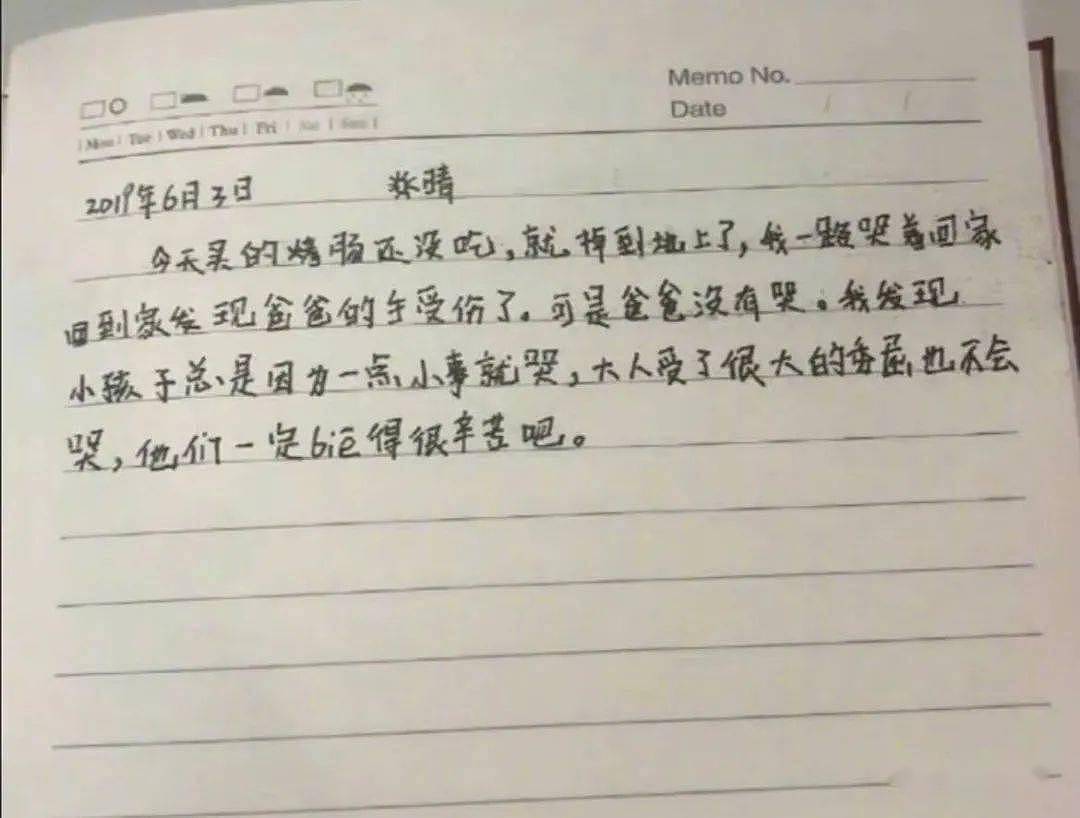 Memo No.
Date / /
Mon Tue Wed Thu Fri Sat Sun
2019年6月3日 晴
今天买的烤肠还没吃,就掉到地上了,我一路哭着回家
回到家发现爸爸的手受伤了。可是爸爸没有哭。我发现
小孩子总是因为一点小事就哭,大人受了很大的委屈也不会
哭,他们一定biē得很辛苦吧。